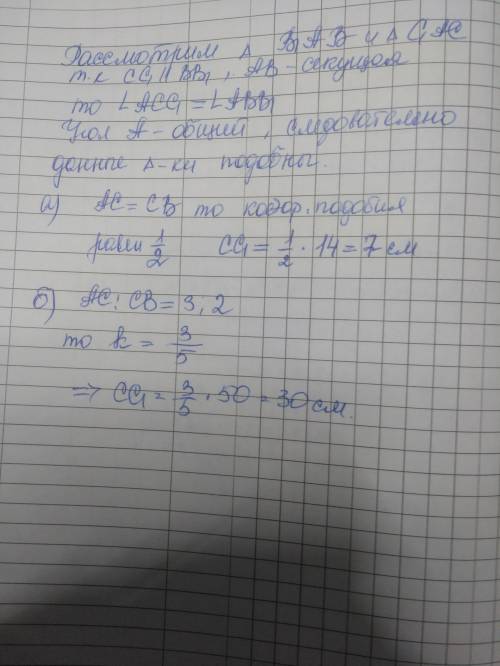 Рассмотрим △ B₁AB и △ C₁AC
т.к CC₁ || BB₁, AB - секущая
то ∠ACC₁ = ∠ABB₁
Угол A - общий, следовательно
данные △-ки подобны.
а) AC = CB то коэф. подобия
равен 1/2 CC₁ = 1/2 · 14 = 7 см
б) AC : CB = 3, 2
то k = 3/5
=> CC₁ = 3/5 · 50 = 30 см.